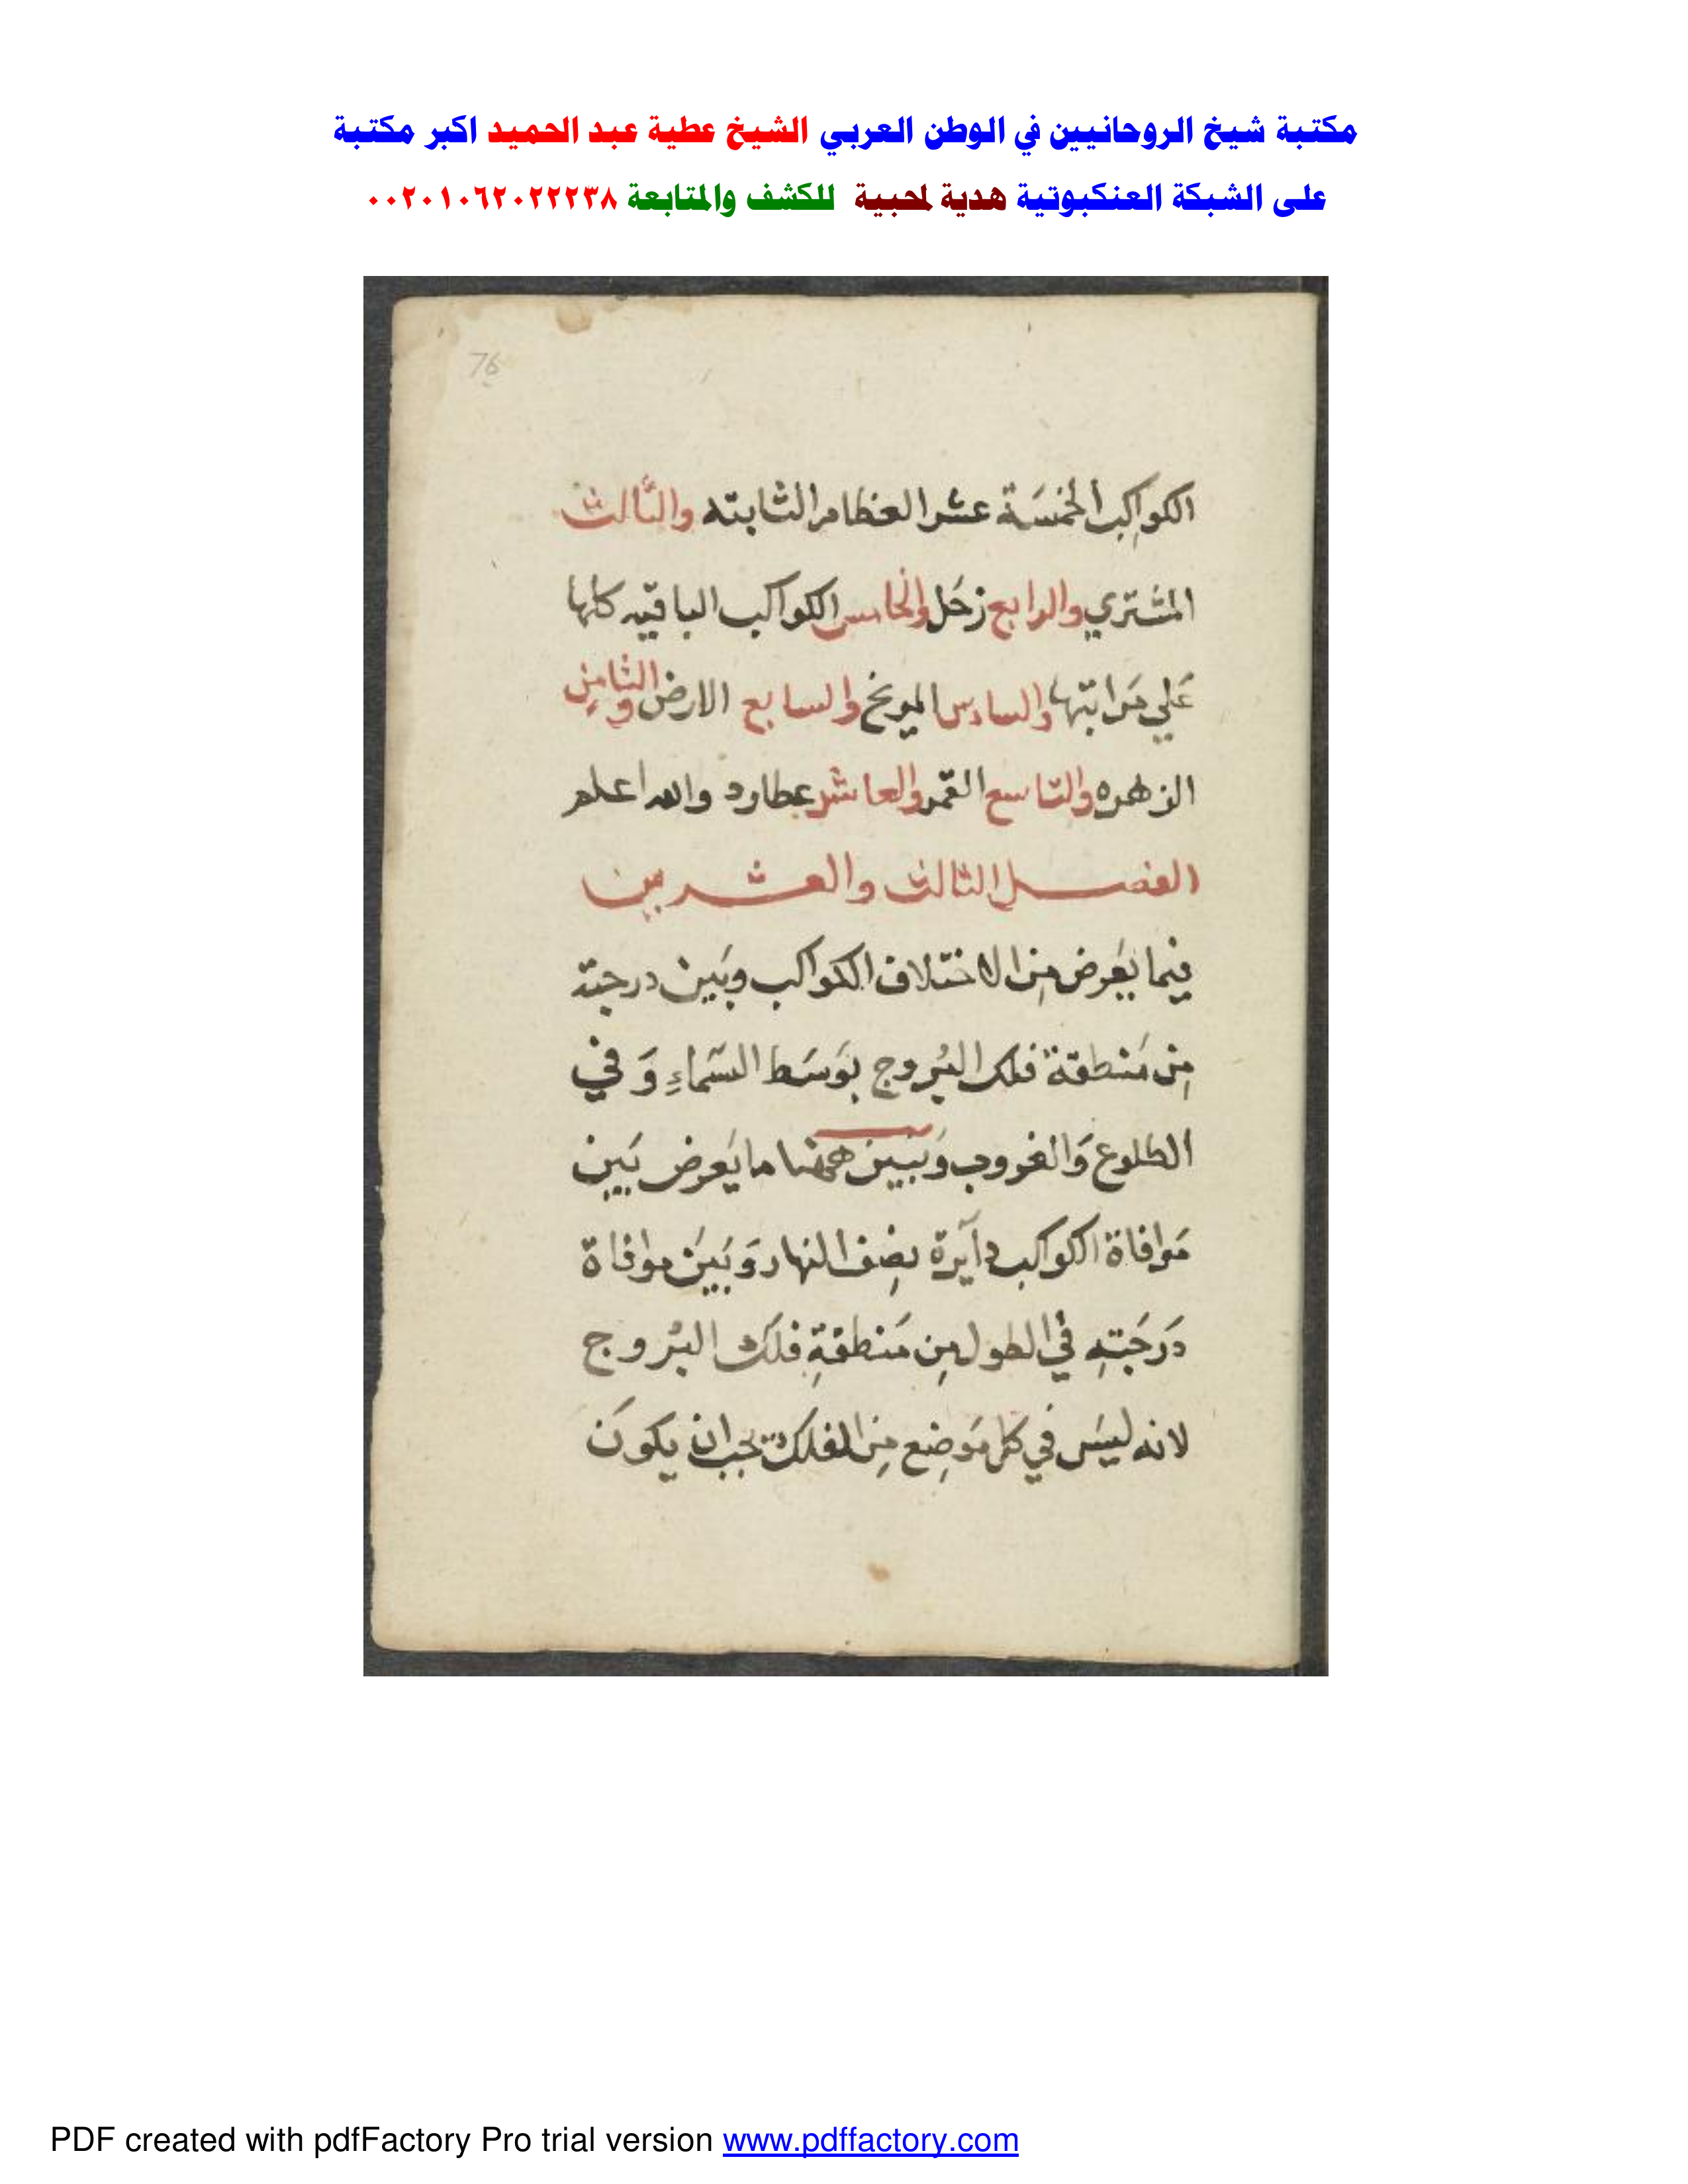 مكتبة شيخ الروحانيين في الوطن العربي الشيخ عطية عبد الحميد اكبر مكتبة
على الشبكة العنكبوتية هدية لمحبية للكشف والمتابعة ٠٠٢٠١٠٦٢٠٢٢٢٣٨
76
الكواكب الخمسَة عشر العظام الثابته والثالث
المشتري والرابع زحَل والخامس الكواكب الباقيه كلها
عَلي مَراتبها والسادس المريخ والسابع الارض والثامِن
الزهره والتاسع القمر والعاشر عطارد والله اعلم
الفصل الثالث والعشرين
فيما يَعرض مِن الاختلاف الكواكب وبَين درجته
مِن مَنطقة فلك البُروج بوَسَط السَماءِ وَفي
الطلوع وَالغروب وَنبين ههنا ما يَعرض بَين
مَوافاة الكواكب دآيرة نصِف النهار وَبَين موافاة
دَرَجَتهِ في الطول مِن مَنطقةِ فلك البُروج
لانه ليسَ في كل مَوضِع مِن الفلك يجب ان يكونَ
PDF created with pdfFactory Pro trial version www.pdffactory.com